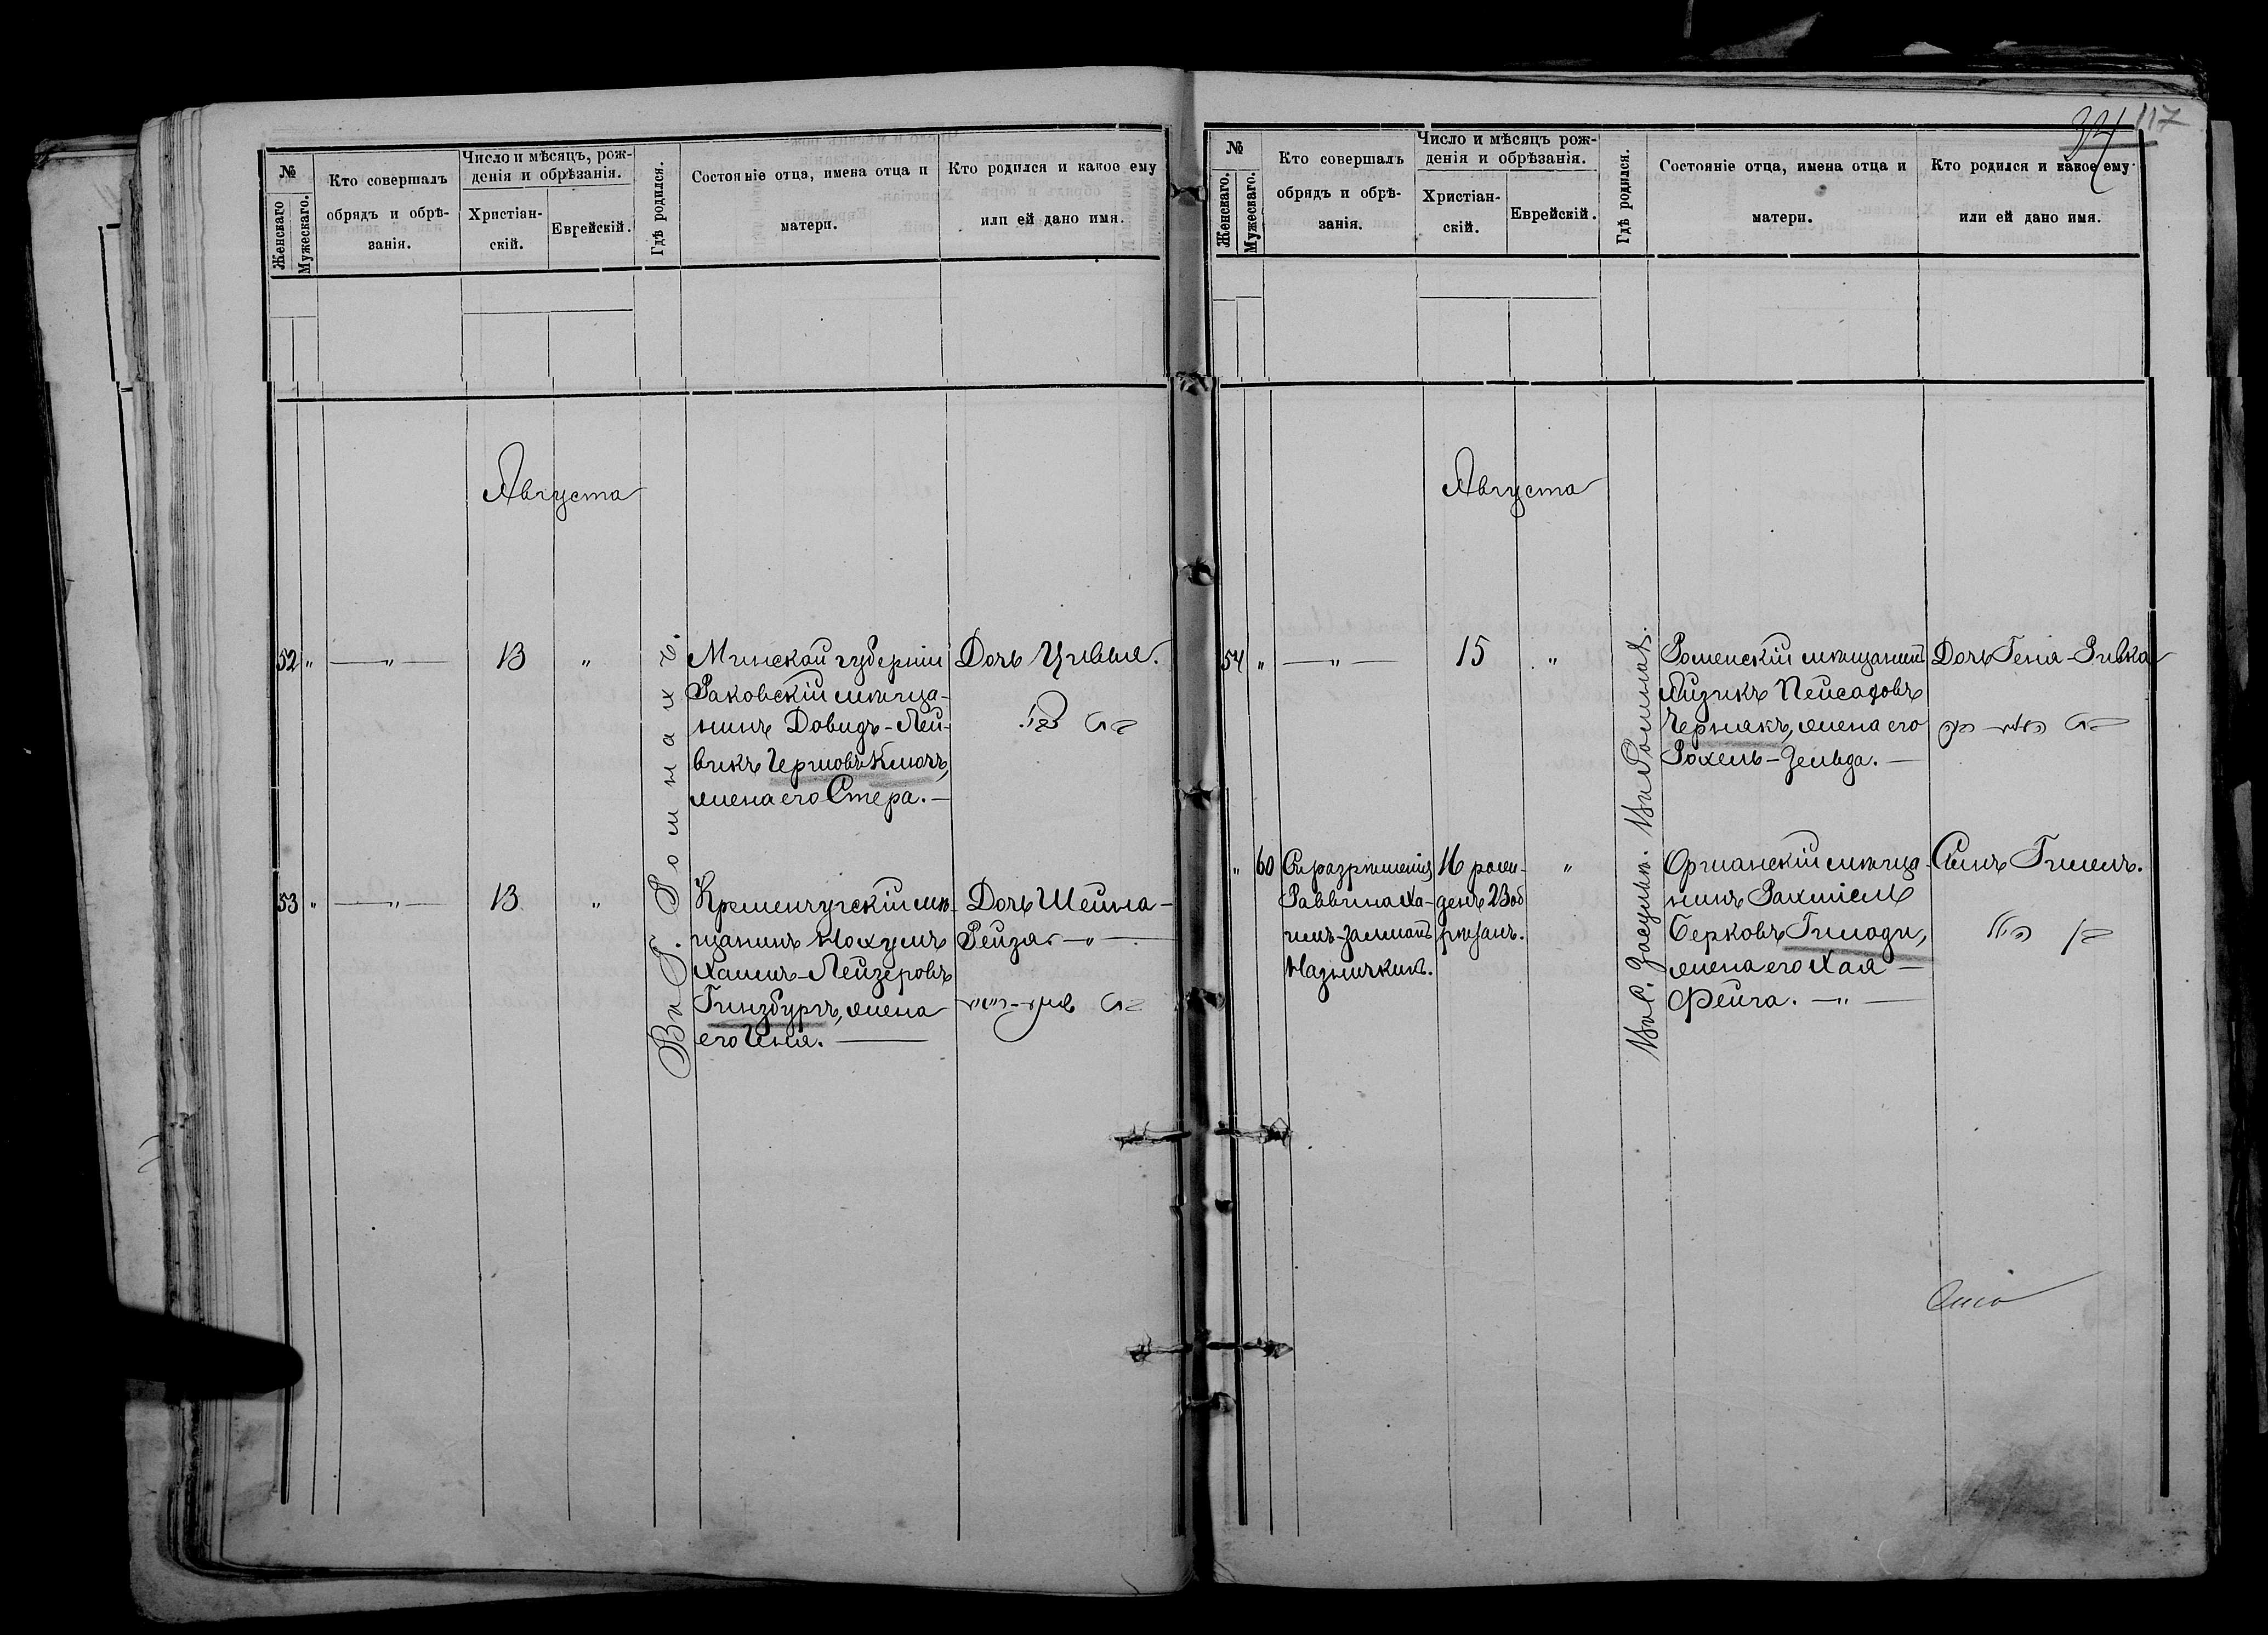 №
Женскаго
Мужескаго.
Кто совершалъ
обрядъ и обрѣ-
занія.
Число и мѣсяцъ, рож-
денія и обрѣзанія.
Христіан-
скій.
Еврейскій.
Гдѣ родился.
Состояніе отца, имена отца и
матери.
Кто родился и какое ему
или ей дано имя.
Августа
52 " — " — 13 "
Минской губерніи
Раковскій мѣща-
нинъ Довидъ-Лей-
викъ
жена его Стера. —
Дочь Цивья.
53 " — " — 13 "
Въ г. Ромнахъ.
Кременчугскій мѣ-
щанинъ Нохумъ
Хаимъ-Лейзеровъ
Гинзбургъ, жена
его Геня. —
Дочь Шейна-
Рейза. — " —
34 117
№
Женскаго.
Мужескаго.
Кто совершалъ
обрядъ и обрѣ-
занія.
Число и мѣсяцъ рож-
денія и обрѣзанія.
Христіан-
скій.
Еврейскій.
Гдѣ родился.
Состояніе отца, имена отца и
матери.
Кто родился и какое ему
или ей дано имя.
Августа
54 " — " — 15 "
Въ Ромнахъ.
Роменскій мѣщанинъ
Айзикъ Пейсаховъ
Чернякъ, жена его
Рохель-Зельда. —
Дочь Геня-Ривка
" 60
Съ разрѣшенія
Раввина Ха-
имъ-Залманъ
16 рож-
денъ 23 об
рѣзанъ.
"
Въ с.
мѣща-
нинъ
Берковъ
жена его Хая —
Фейга. — " —
Сынъ Гилель.